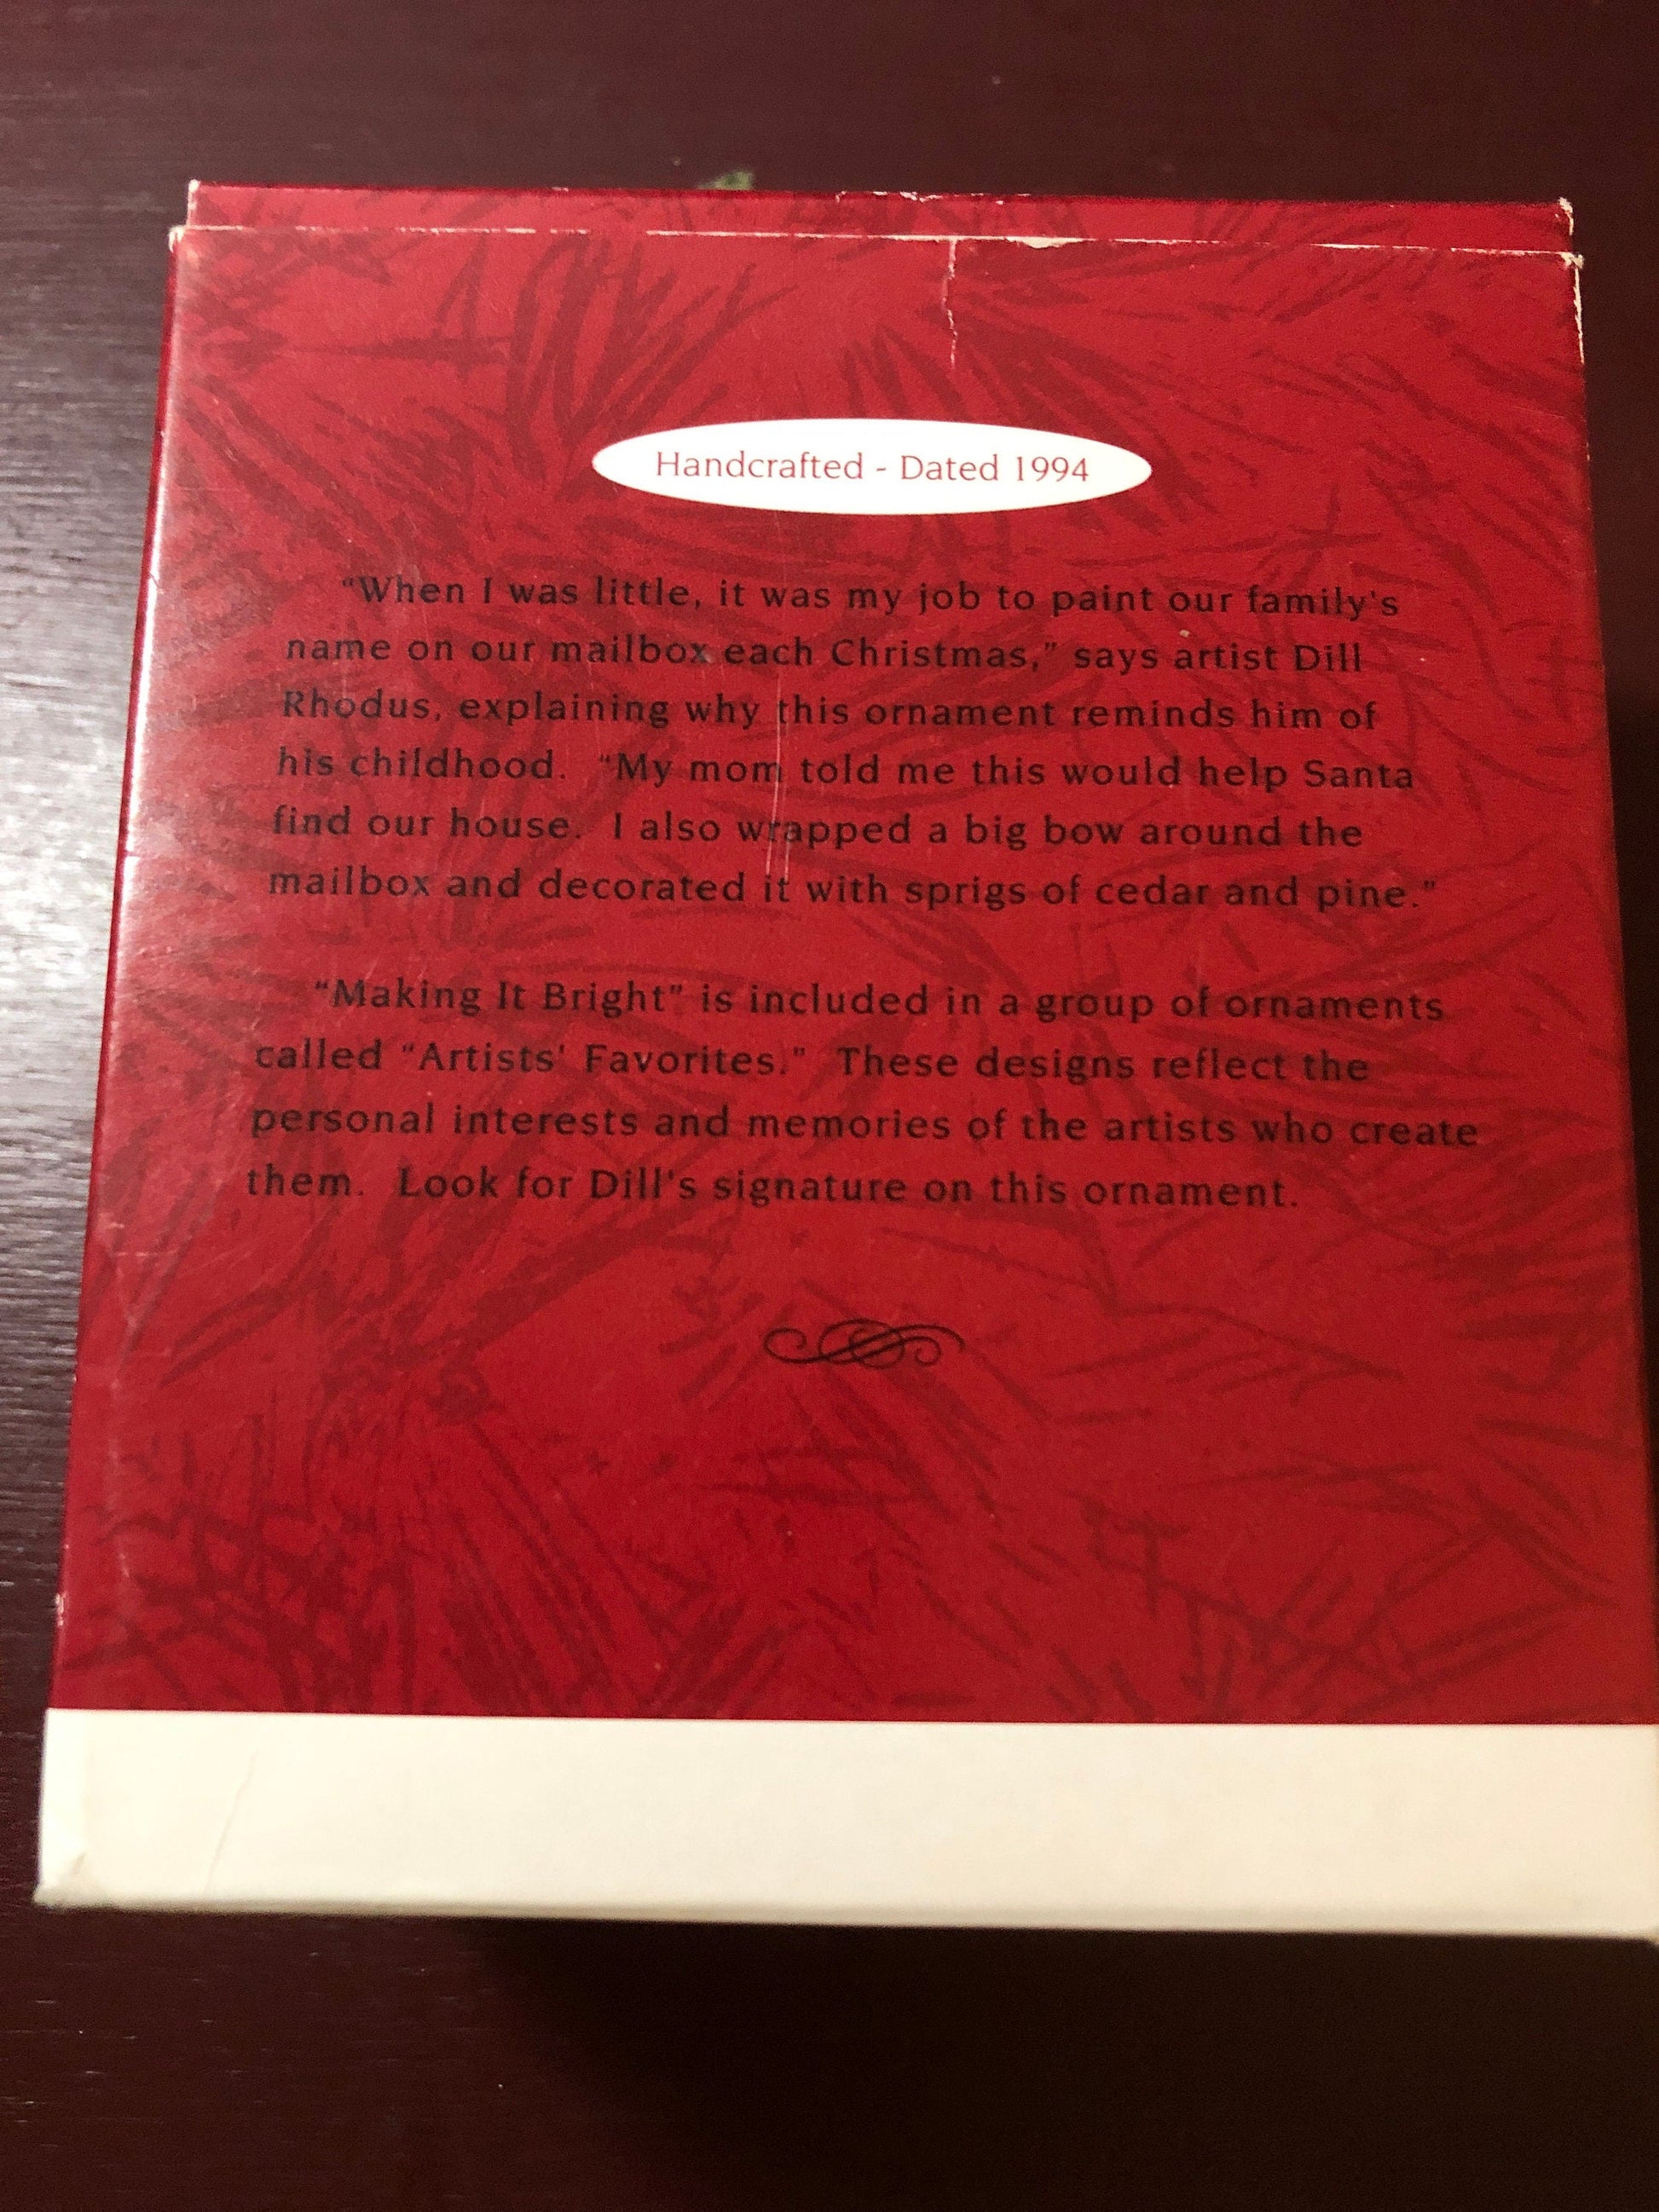 Handcrafted - Dated 1994
"When I was little, it was my job to paint our family's
name on our mailbox each Christmas," says artist Dill
Rhodus, explaining why this ornament reminds him of
his childhood. "My mom told me this would help Santa
find our house. I also wrapped a big bow around the
mailbox and decorated it with sprigs of cedar and pine."
"Making It Bright" is included in a group of ornaments
called "Artists' Favorites." These designs reflect the
personal interests and memories of the artists who create
them. Look for Dill's signature on this ornament.